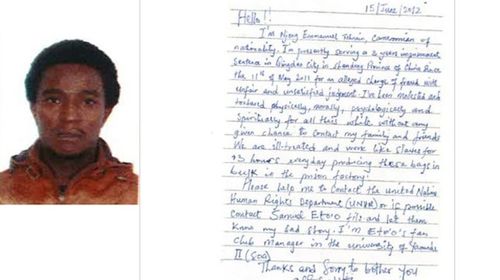 15/June/2012
Hello!!
I'm Njong Emmanuel Tohnain, Cameroonian of
nationality. I'm presently serving a 3 years imprisonment
sentence in Qingdao city in Shandong Province of China Since
the 11th of May 2011 for an alleged charge of fraud with
unfair and unsatisfied judgment I've been molested and
tortured physically, morally, psychologically and
spiritually for all this while without any
given chance to contact my family and friends
We are ill-treated and work like slaves for
13 hours everyday producing these bags in
bulk in the prison factory.
Please help me to contact the united Nations
Human Rights Department or if possible
contact Samuel Eto'o fils and let them
know my sad story. I'm Eto'o's fan
Club Manager in the university of Yaounde
II (Soa)
Thanks and Sorry to bother you